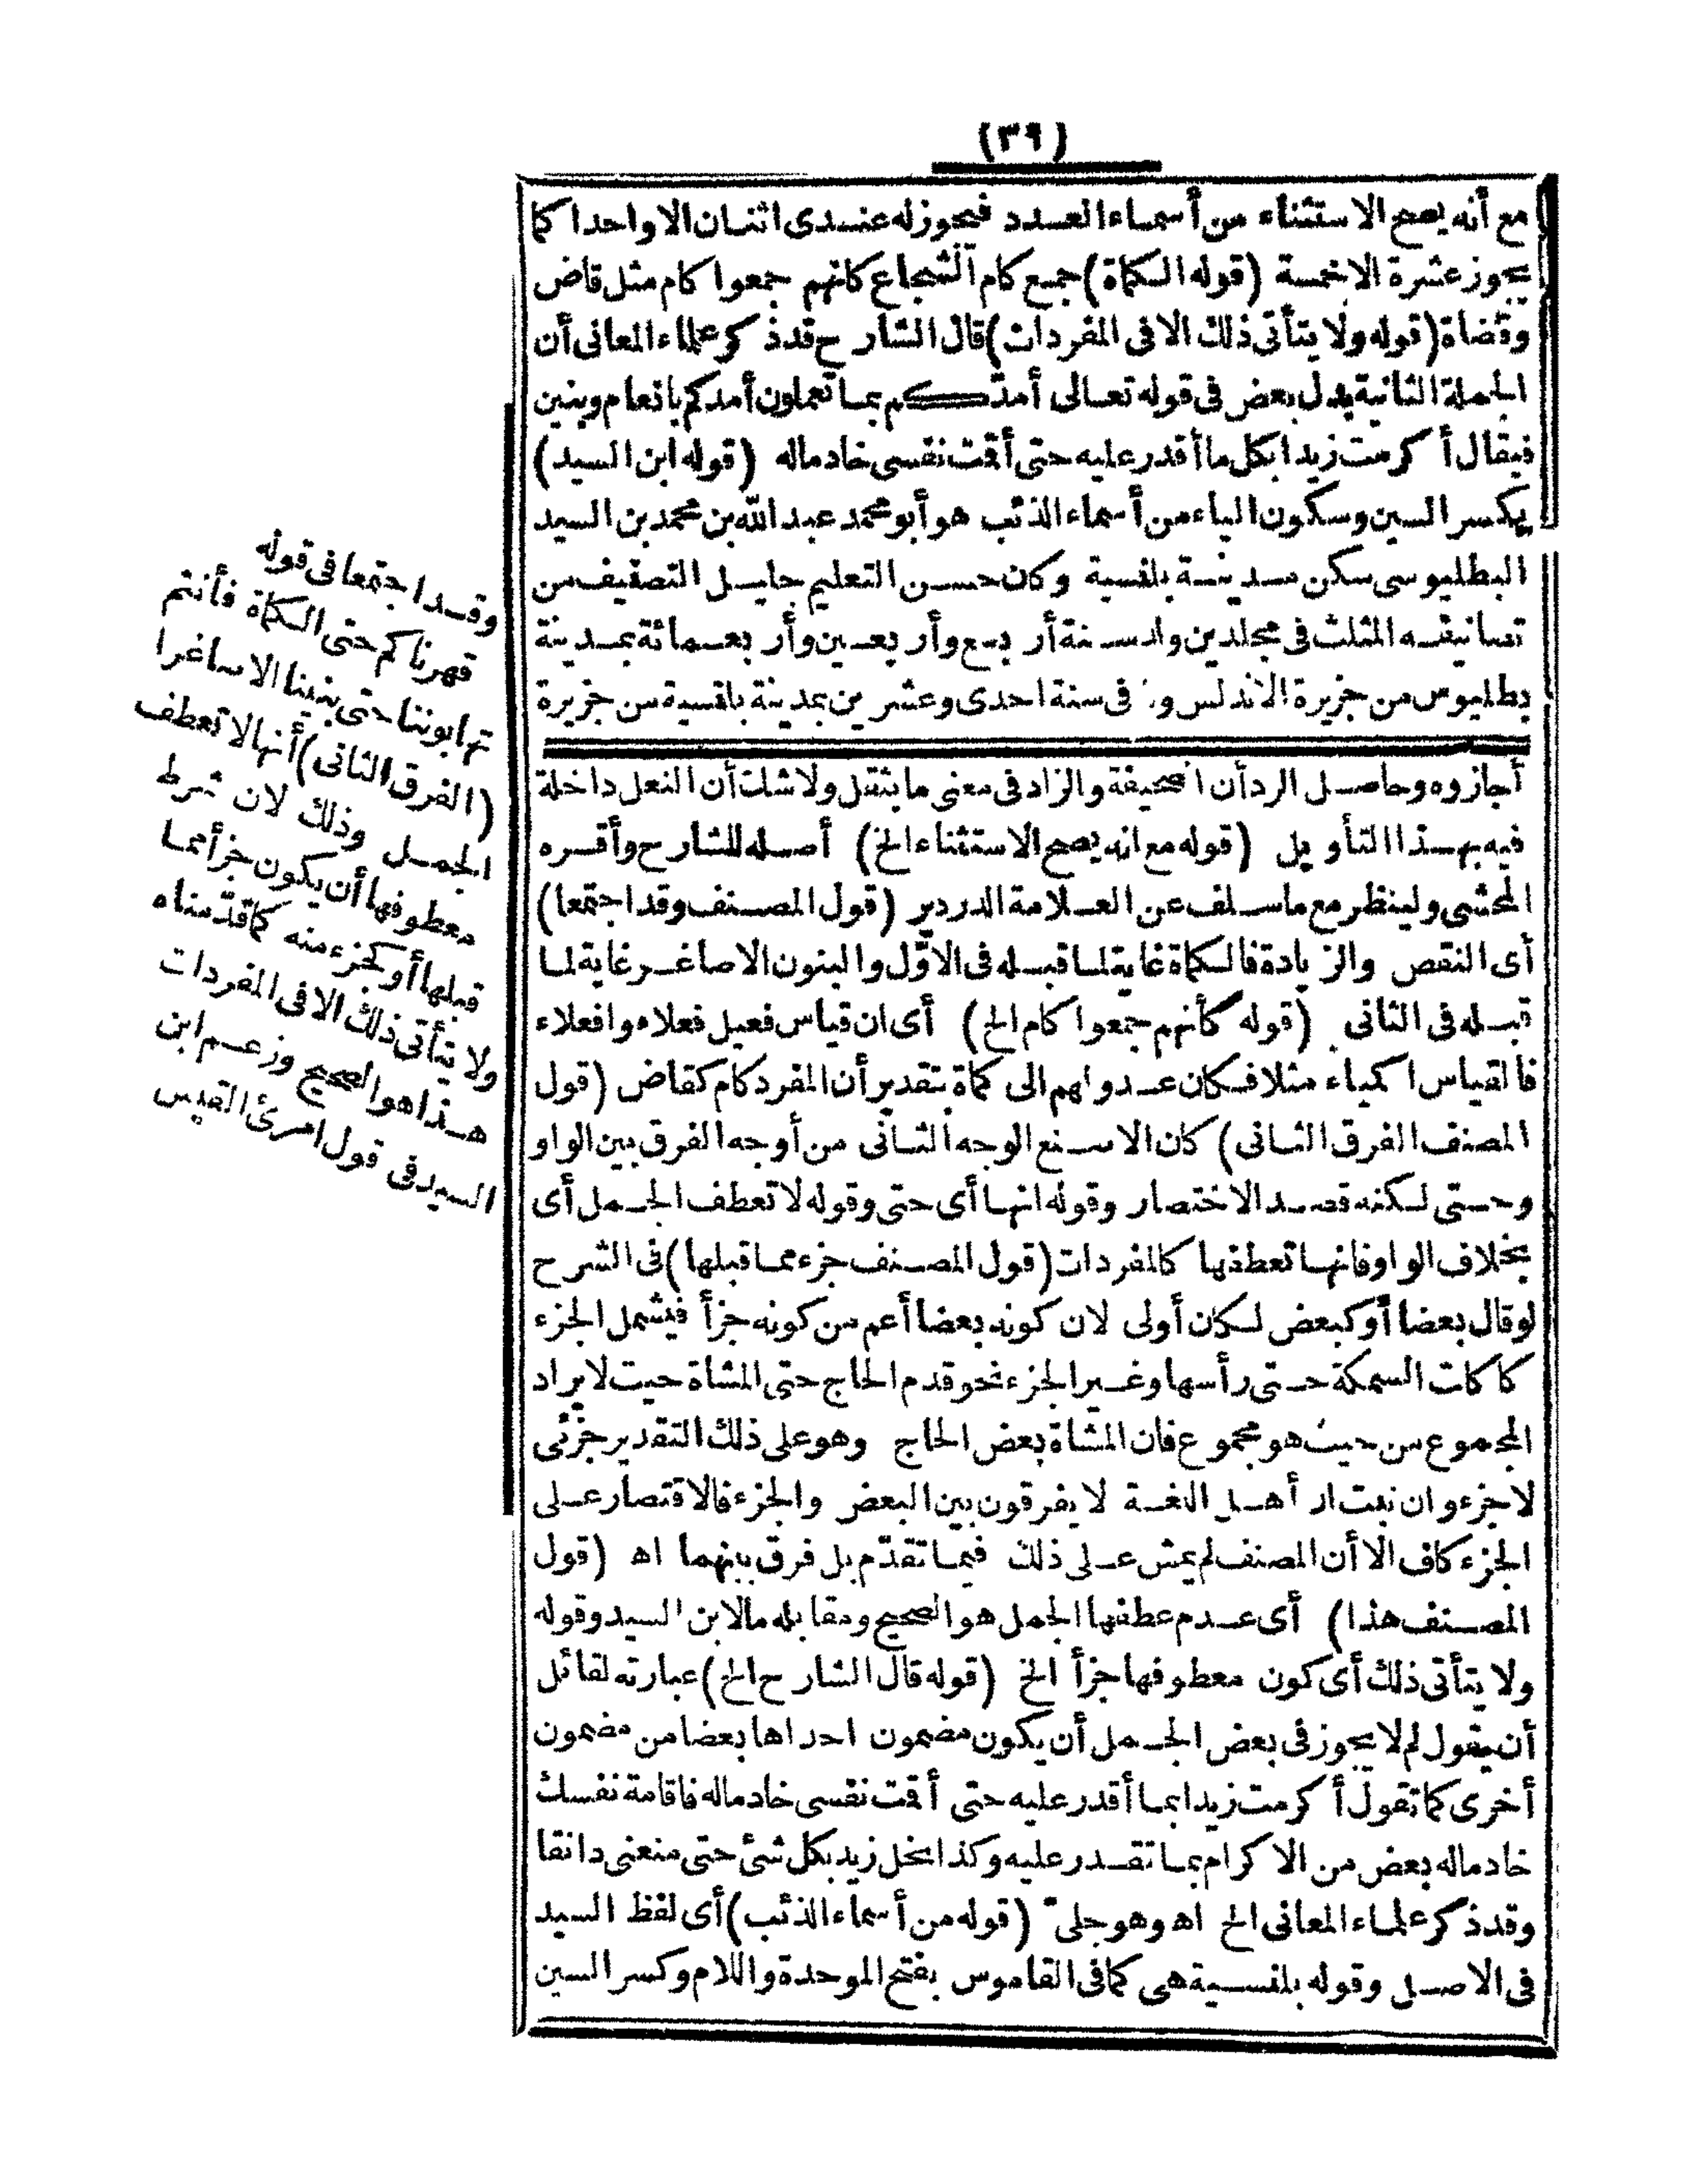 (٣٩)
مع أنه يصح الاستثناء من أسماء العدد فيجوز له عندى اثنان الا واحدا كما
يجوز عشرة الا خمسة (قوله الكماة) جمع كام الشجاع كانهم جمعوا كام مثل قاض
وقضاة (قوله ولا يتأتى ذلك الا فى المفردات) قال الشارح قد ذكر علماء المعانى أن
الجملة الثانية بدل بعض فى قوله تعالى أمدكم بما تعملون أمدكم بانعام وبنين
فيقال أكرمت زيدا بكل ما أقدر عليه حتى أقمت نفسى خادما له (قوله ابن السيد)
بكسر السين وسكون الياء من أسماء الذئب هو أبو محمد عبد الله بن محمد بن السيد
البطليوسى سكن مدينة بلنسية وكان حسن التعليم جليل التصنيف من
تصانيفه المثلث فى مجلدين ولد سنة أربع وأربعين وأربعمائة بمدينة
بطليوس من جزيرة الاندلس و فى سنة احدى وعشرين بمدينة بلنسية من جزيرة
أجازوه وحاصل الرد أن الصحيفة والزاد فى معنى ما يثقل ولا شك أن النعل داخلة
فيه بهذا التأويل (قوله مع انه يصح الاستثناء الخ) أصله للشارح وأقره
المحشى ولينظر مع ما سلف عن العلامة الدردير (قول المصنف وقد اجتمعا)
أى النقص والزيادة فالكماة غاية لما قبله فى الاوّل والبنون الاصاغر غاية لما
قبله فى الثانى (قوله كأنهم جمعوا كام الخ) أى ان قياس فعيل فعلاء وافعلاء
فالقياس اكمياء مثلا فكان عدولهم الى كماة بتقدير أن المفرد كام كقاض (قول
المصنف الفرق الثانى) كان الاسنع الوجه الثانى من أوجه الفرق بين الواو
وحتى لكنه قصد الاختصار وقوله انها أى حتى وقوله لا تعطف الجمل أى
بخلاف الواو فانها تعطفها كالمفردات (قول المصنف جزء مما قبلها) فى الشرح
لو قال بعضا أو كبعض لكان أولى لان كونه بعضا أعم من كونه جزأ فيشمل الجزء
كاكلت السمكة حتى رأسها وغير الجزء نحو قدم الحاج حتى المشاة حيث لا يراد
المجموع من حيث هو مجموع فان المشاة بعض الحاج وهو على ذلك التقدير جزئى
لا جزء وان نعت ار أهل اللغة لا يفرقون بين البعض والجزء فالاقتصار على
الجزء كاف الا أن المصنف لم يمش على ذلك فيما تقدّم بل فرق بينهما اه (قول
المصنف هذا) أى عدم عطفها الجمل هو الصحيح ومقابله ما لابن السيد وقوله
ولا يتأتى ذلك أى كون معطوفها جزأ الخ (قوله قال الشارح الخ) عبارته لقائل
أن يقول لم لا يجوز فى بعض الجمل أن يكون مضمون احداها بعضا من مضمون
أخرى كما تقول أكرمت زيدا بما أقدر عليه حتى أقمت نفسى خادما له فاقامة نفسك
خادما له بعض من الاكرام بما تقدر عليه وكذا بخل زيد بكل شئ حتى منعنى دانقا
وقد ذكر علماء المعانى الخ اه وهو جلى (قوله من أسماء الذئب) أى لفظ السيد
فى الاصل وقوله بلنسية هى كما فى القاموس بفتح الموحدة واللام وكسر السين
وقد اجتمعا فى قوله
قهرناكم حتى الكماة فأنتم
تهابوننا حتى بنينا الاصاغرا
(الفرق الثانى) أنها لا تعطف
الجمل وذلك لان شرط
معطوفها أن يكون جزأ مما
قبلها أو كجزء منه كما قدّمناه
ولا يتأتى ذلك الا فى المفردات
هذا هو الصحيح وزعم ابن
السيد فى قول امرئ القيس